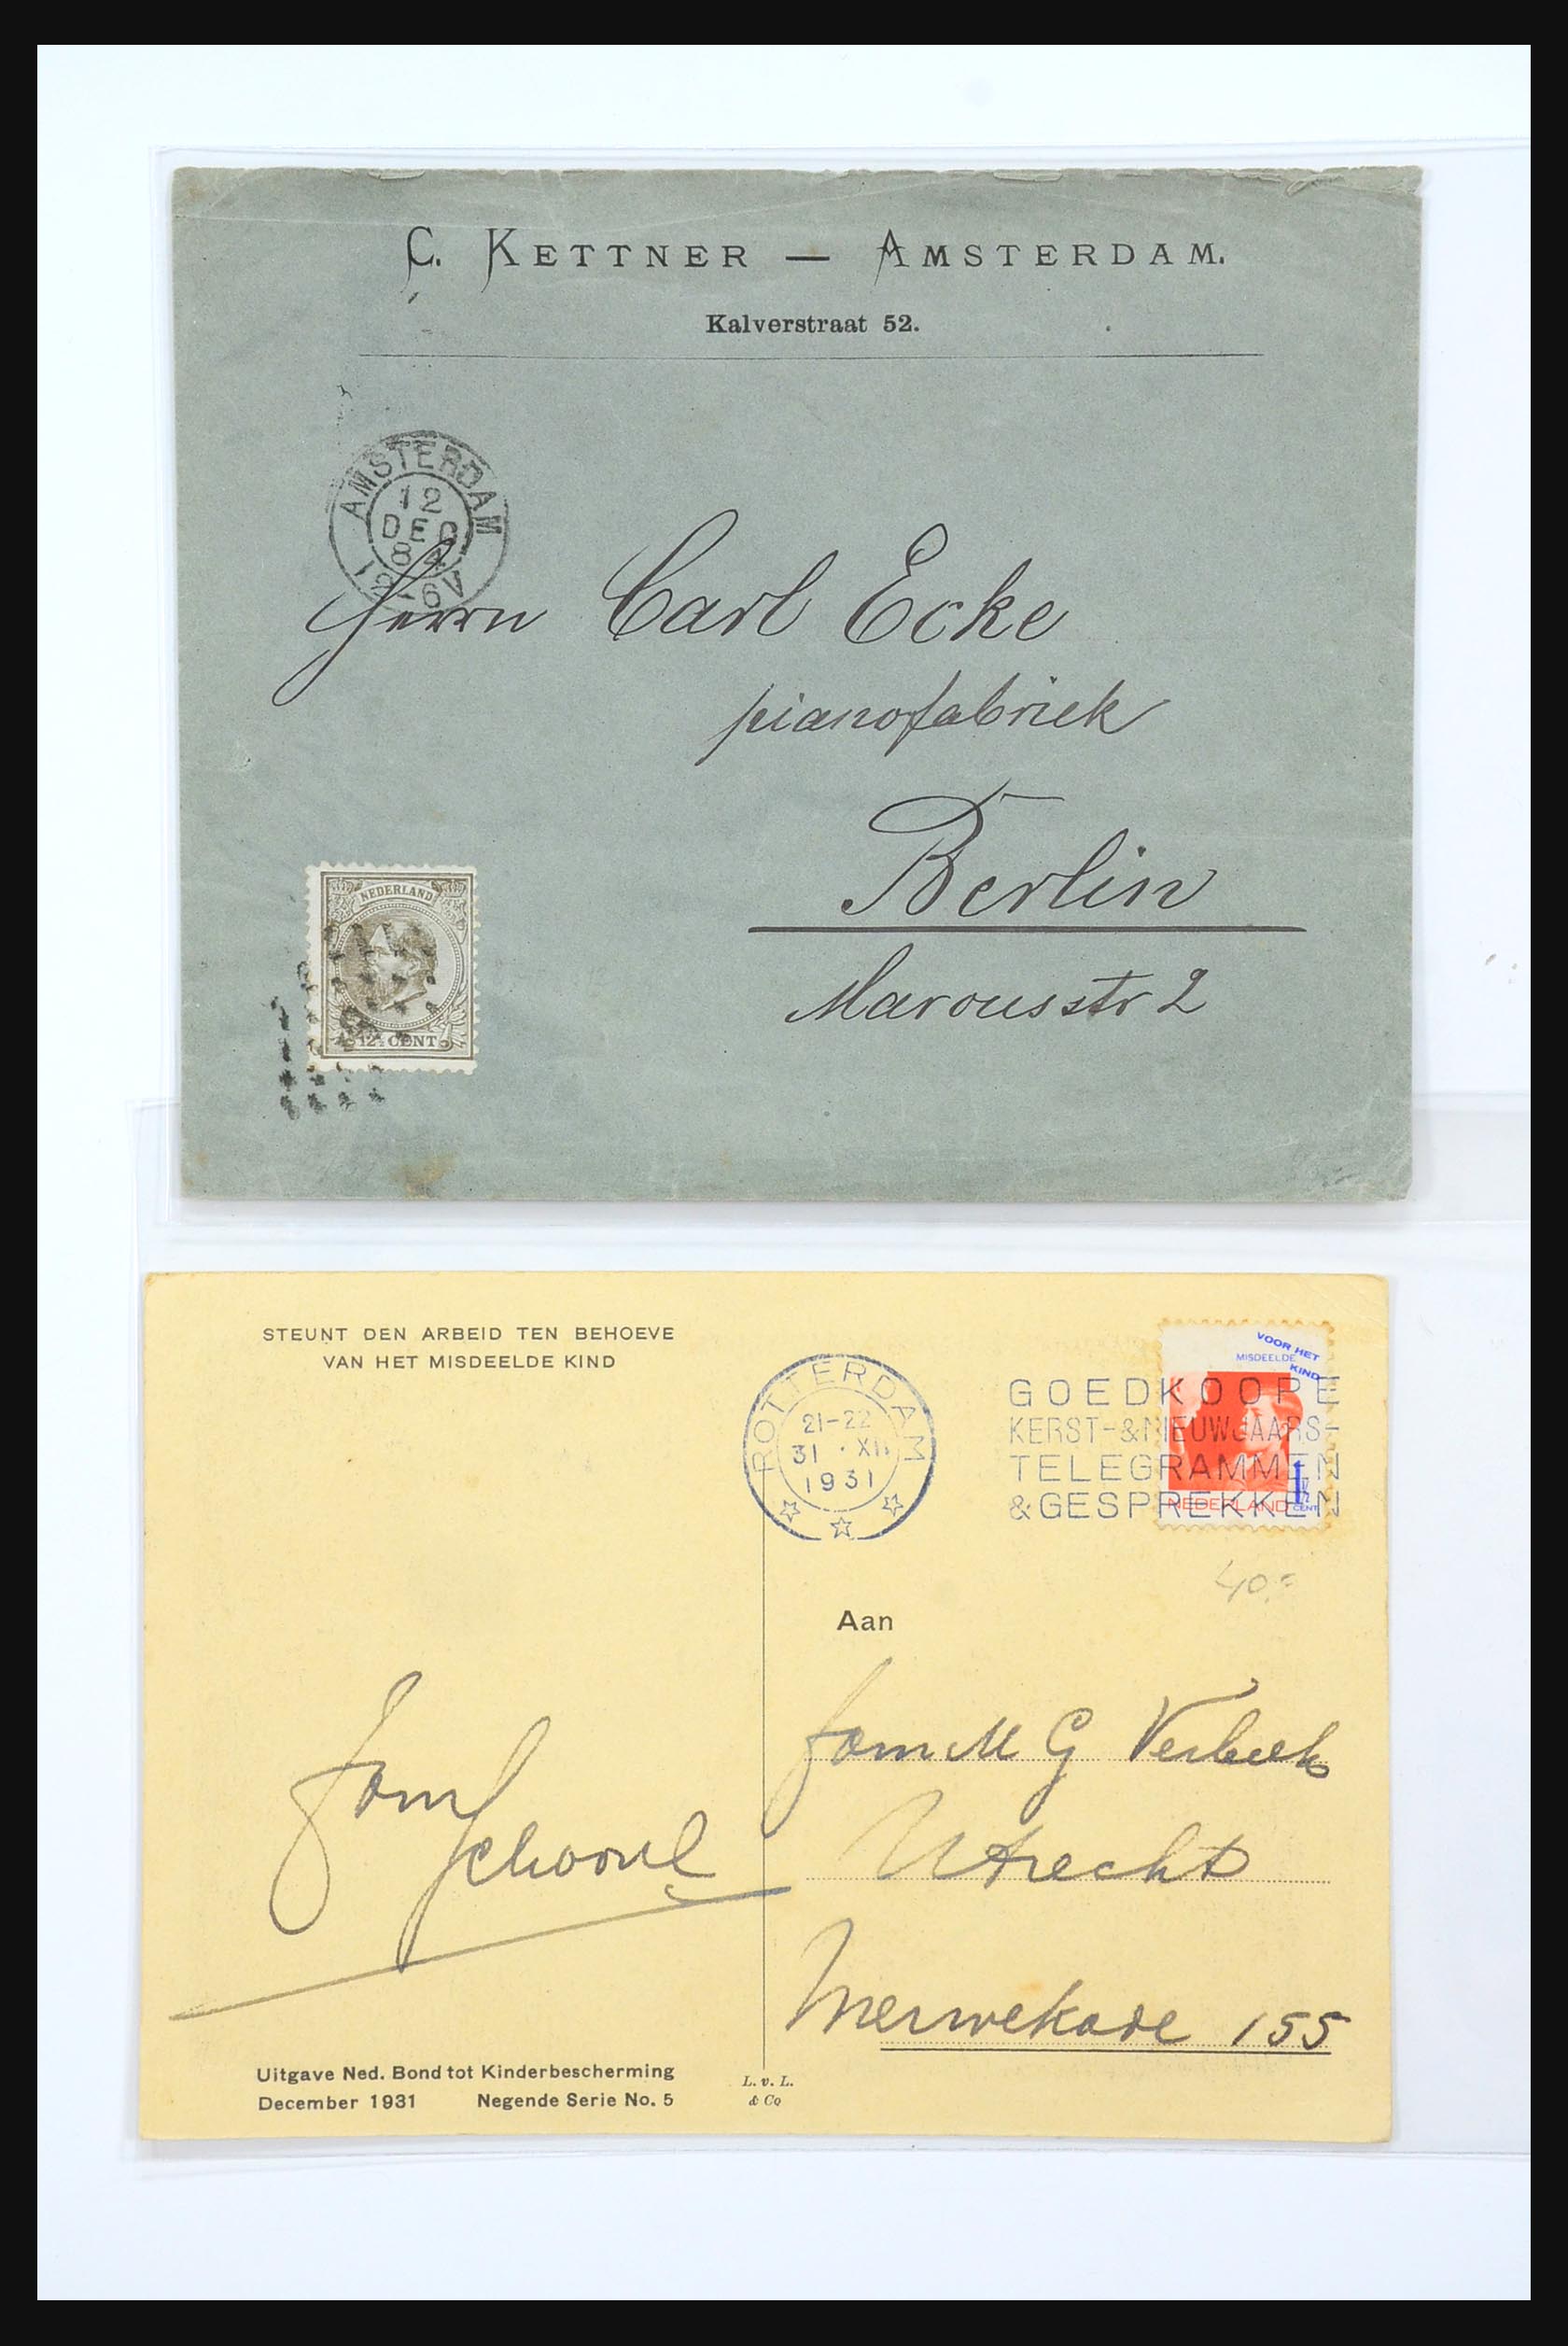 C. KETTNER — AMSTERDAM.
Kalverstraat 52.
AMSTERDAM
12
DEC
84
12-6V
Herrn Carl Ecke
pianofabriek
Berlin
Marcusstr 2
NEDERLAND
12½ CENT
STEUNT DEN ARBEID TEN BEHOEVE
VAN HET MISDEELDE KIND
ROTTERDAM
21-22
31 · XII
1931
VOOR HET
MISDEELDE
KIND
GOEDKOOPE
KERST-&NIEUWJAARS-
TELEGRAMMEN
&GESPREKKEN
NEDERLAND
1½
CENT
40,=
Aan
Fam M G Verbeek
Utrecht
Merwekade 155
Fam
Schoorl
Uitgave Ned. Bond tot Kinderbescherming
December 1931 Negende Serie No. 5
L. v. L.
& Co